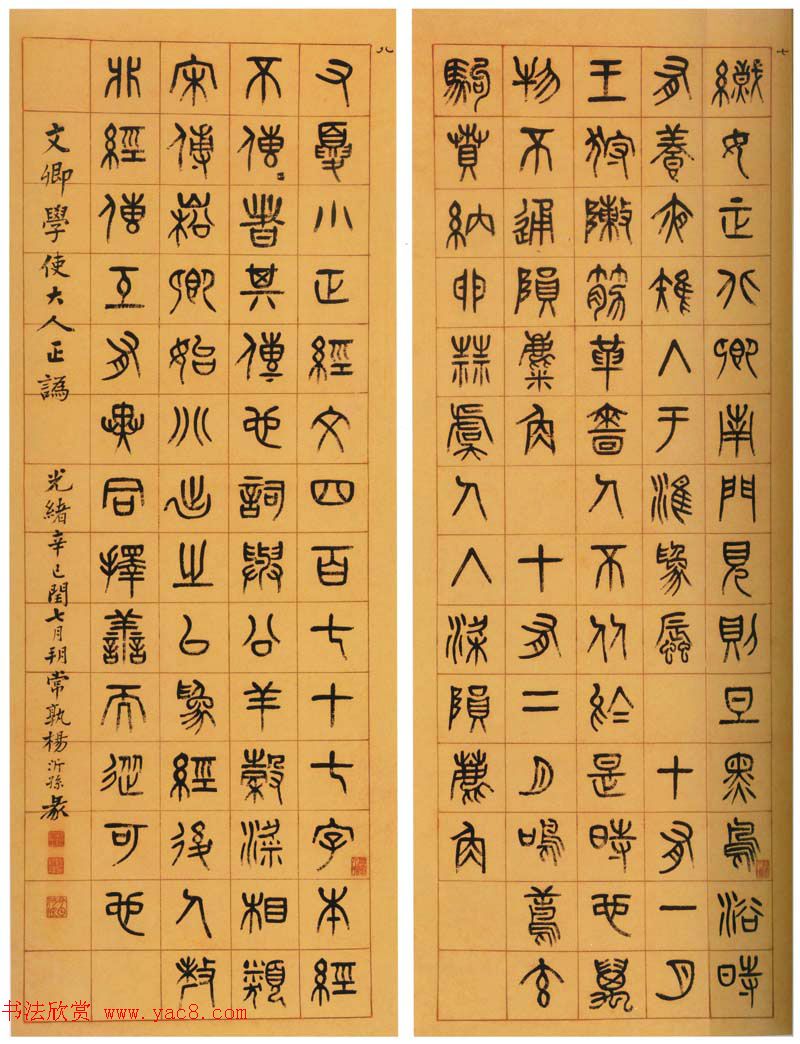 七
織女正北鄉南門見則旦黑鳥浴時
有養夜雉入于淮為蜃 十有一月
王狩陳筋革嗇人不从於是時也萬
物不通隕麋角 十有二月鳴鳶玄
駒賁納卵蒜虞人入梁隕麋角
八
又夏小正經文四百七十七字本經
不傳者其傳也詞與公羊穀梁相類
宋傅崧卿始分出之以為經後人
非經傳互有異同擇善而從可也
文卿學使大人正譌 光緒辛巳閏七月朔常孰楊沂孫篆
书法欣赏 www.yac8.com